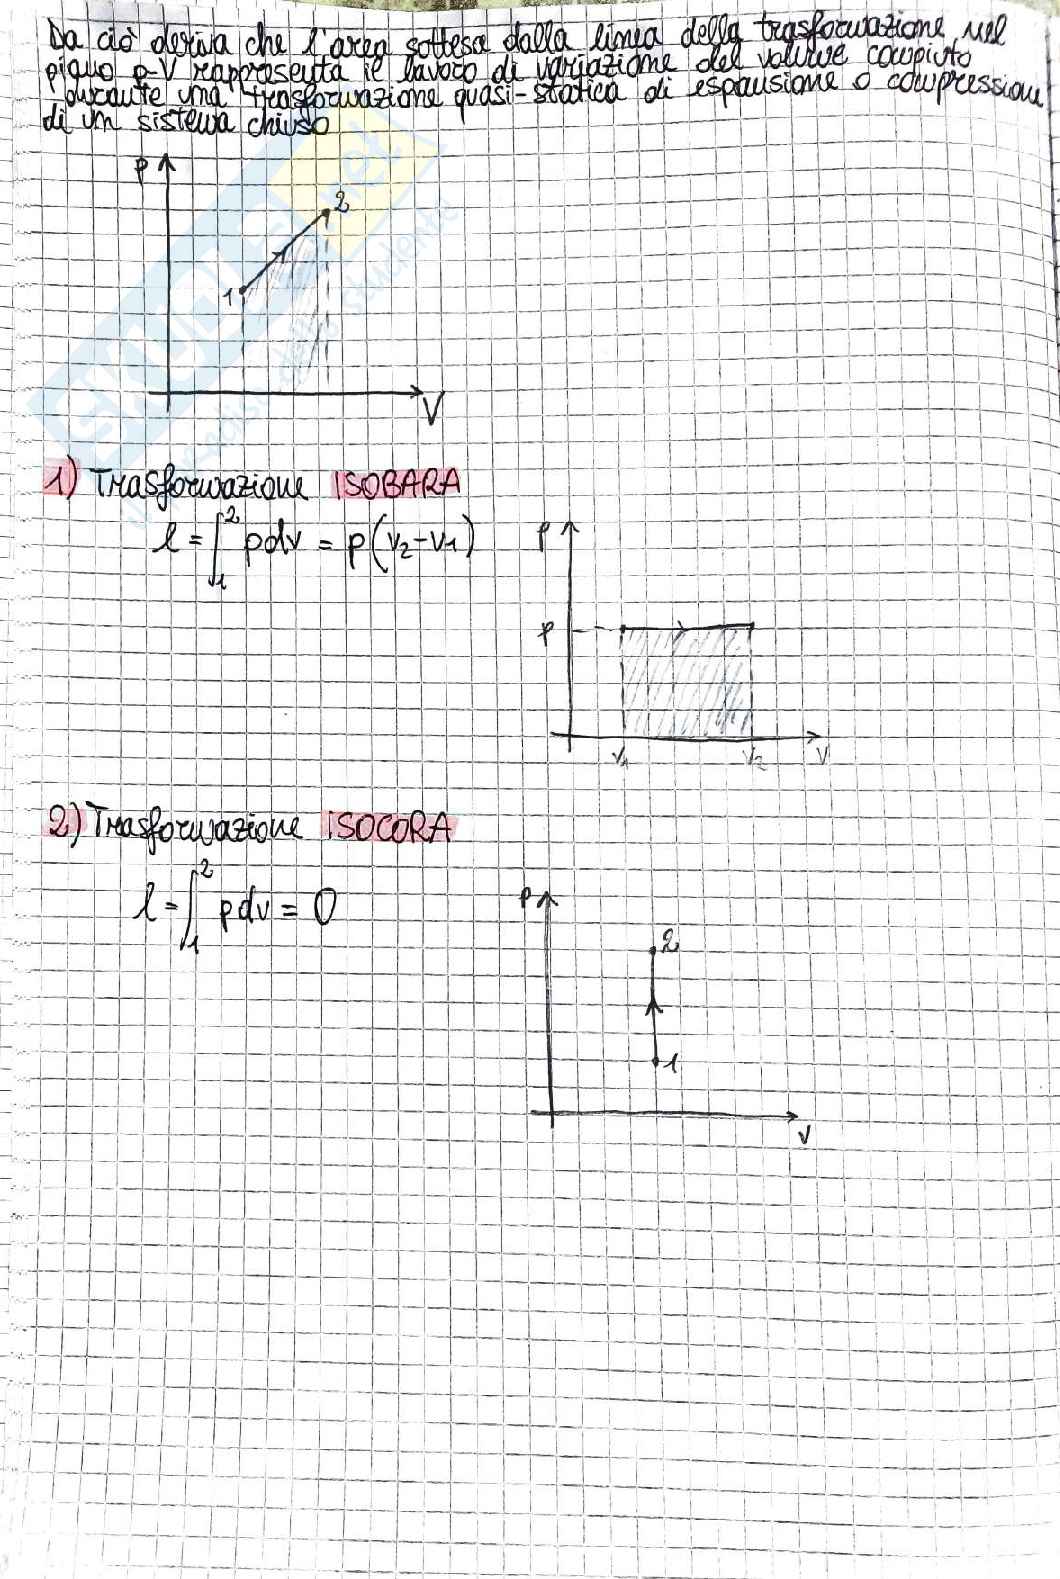 Da ciò deriva che l'area sottesa dalla linea della trasformazione nel
piano p-V rappresenta il lavoro di variazione del volume compiuto
durante una trasformazione quasi-statica di espansione o compressione
di un sistema chiuso
P
2
1
V
1) Trasformazione ISOBARA
l = ∫₁² pdv = p(v₂-v₁)
P
P
V₁ V₂ V
2) Trasformazione ISOCORA
l = ∫₁² pdv = 0
P
2
1
V
SKUOLA.net